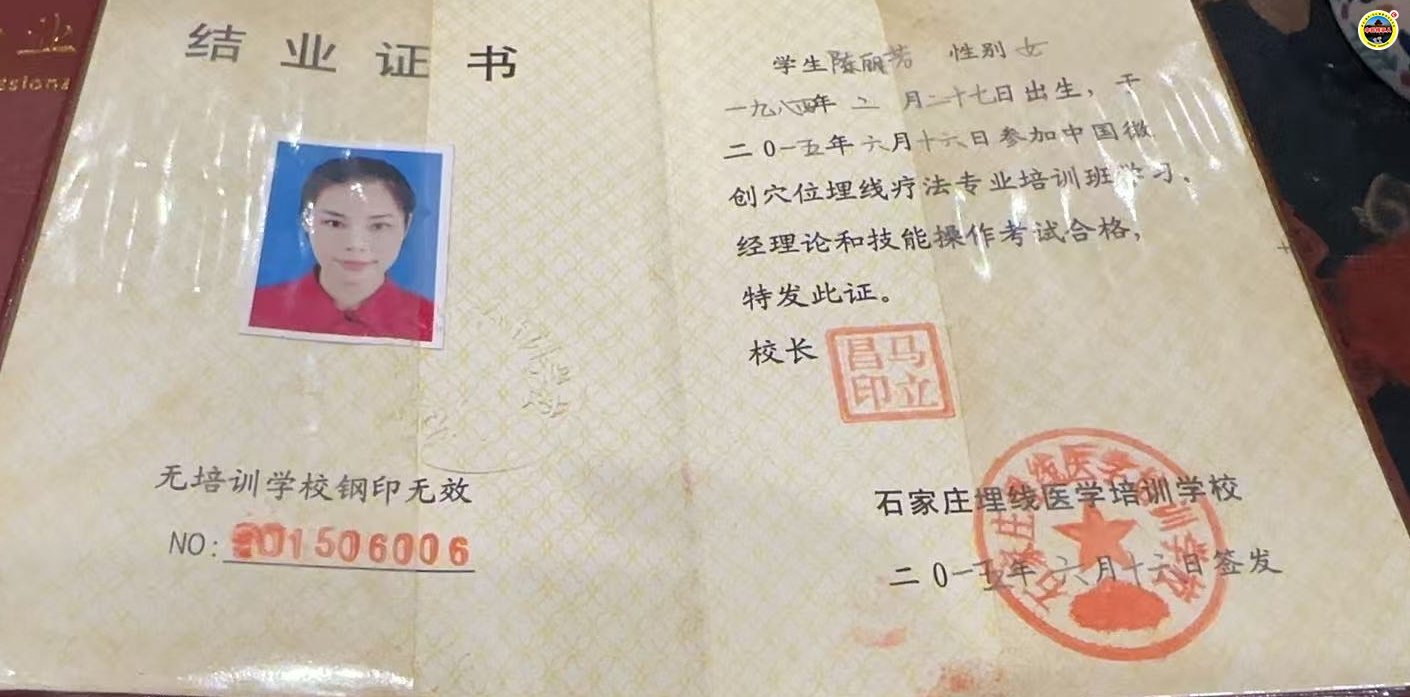 结业证书
无培训学校钢印无效
NO: 201506006
学生陈丽芳 性别女
一九八四年二月二十七日出生，于
二0一五年六月十六日参加中国微
创穴位埋线疗法专业培训班学习，
经理论和技能操作考试合格，
特发此证。
校长
马立昌印
石家庄埋线医学培训学校
二0一五年六月十六日签发
石家庄埋线医学培训学校
业
essiona